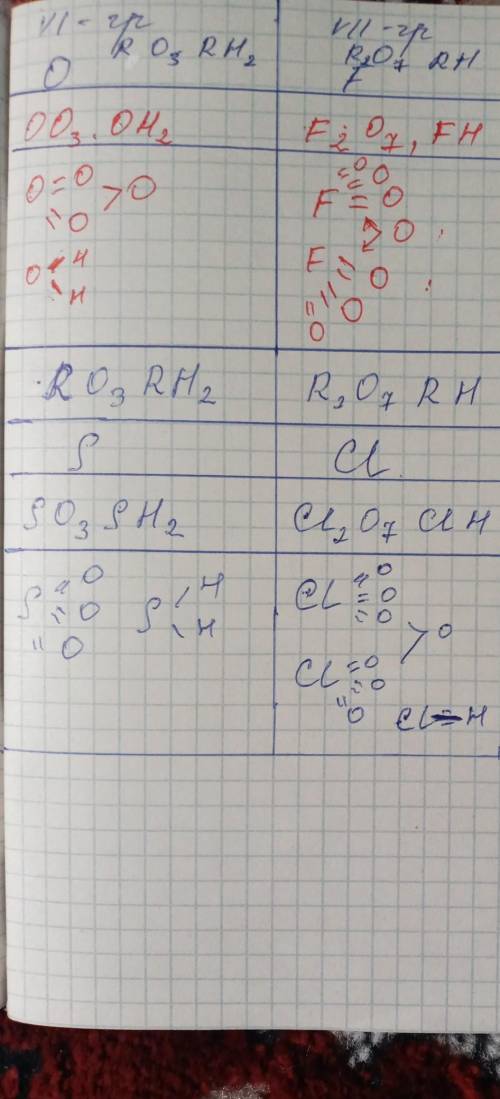 VI-гр
RO₃ RH₂
O
VII-гр
R₂O₇ RH
F
OO₃. OH₂
F₂O₇, FH
O=O
=O >O
O H
H
=O=O
F=O
>O
F O
=O
O
RO₃ RH₂
R₂O₇ RH
S
Cl
SO₃ SH₂
Cl₂O₇ ClH
S=O
=O
=O
S H
H
Cl=O
=O
=O
>O
Cl=O
=O
=O
Cl-H